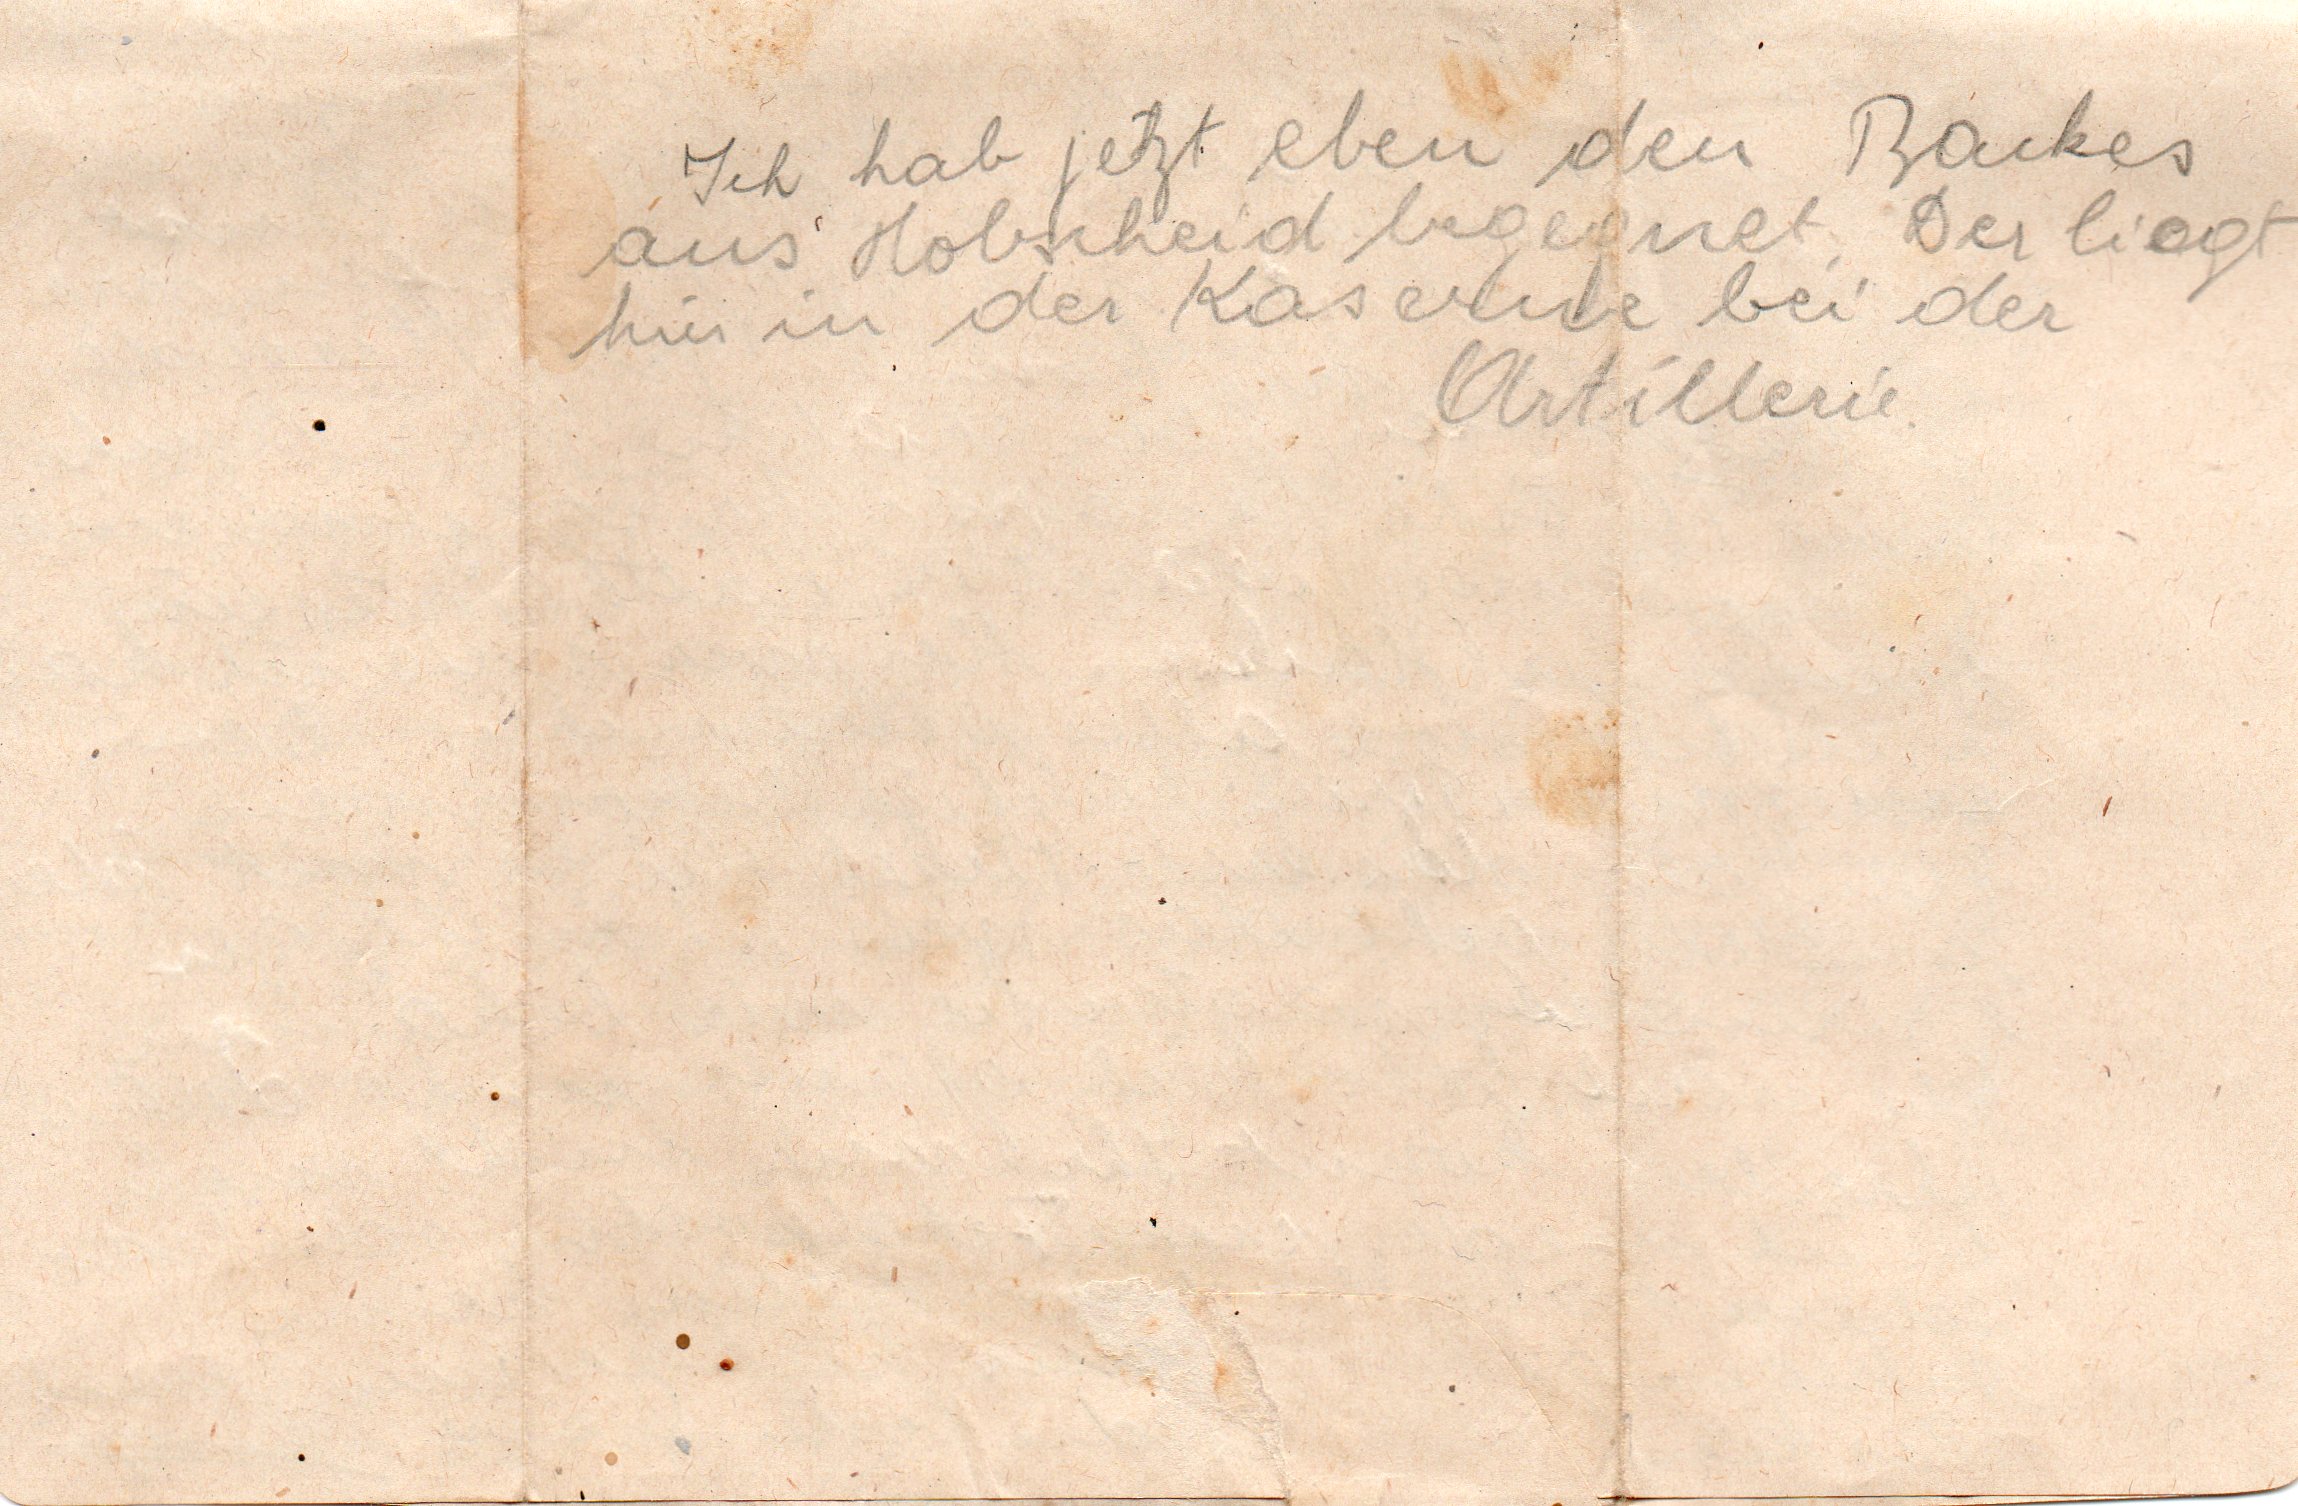 Ich hab jetzt eben den Backes
aus Hobscheid begegnet. Der liegt
hier in der Kaserne bei der
Artillerie.